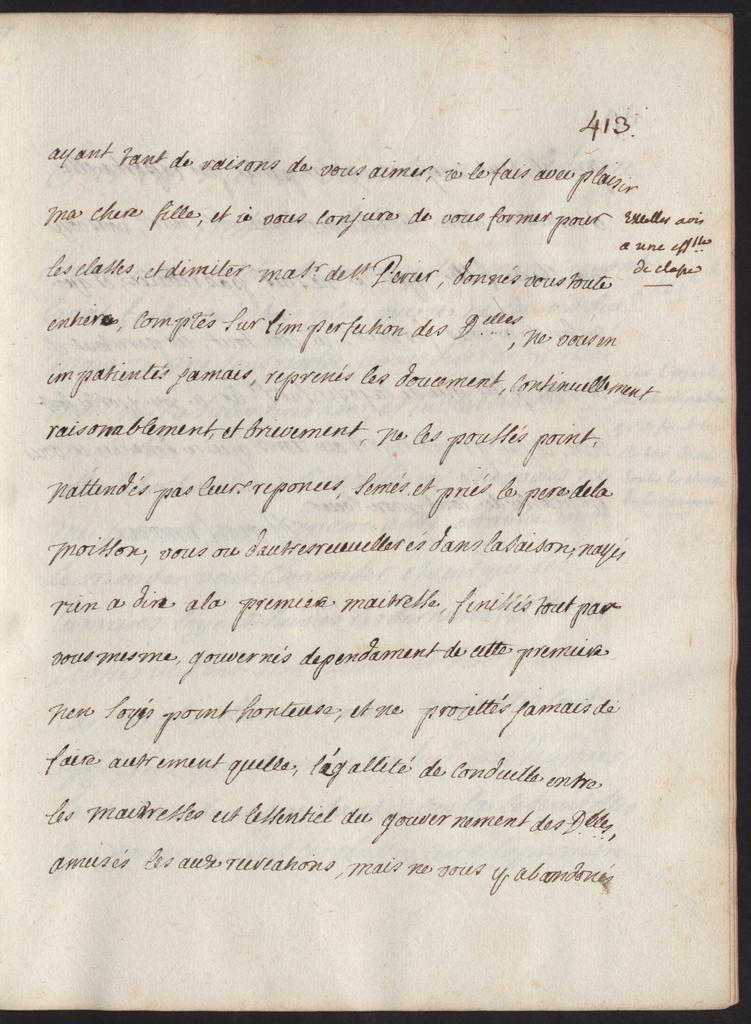 413.
ayant tant de raisons de vous aimer, ie le fais avec plaisir
ma chere fille, et ie vous conjure de vous former pour
les classes, et dimiter mad.r de s.t Perier, donnés vous toute
entiere, comptés sur limperfection des D.elles, ne vous en
impatientés jamais, reprenés les doucement, continuellement
raisonnablement, et brivement, ne les poussés point,
nattendés pas leurs reponces, semés et priés le pere de la
moisson, vous ou dautres recueillerés dans la saison, nayés
rien a dire a la premiere maitresse, finissés tout par
vous mesme, gouvernés dependament de cette premiere
nen soyés point honteuse, et ne projettés jamais de
faire autrement quelle, légallité de conduitte entre
les maitresses est lessentiel du gouvernement des D.elles,
amusés les aux recreations, mais ne vous y abandonés
Excellens avis
a une off.lle
de classe